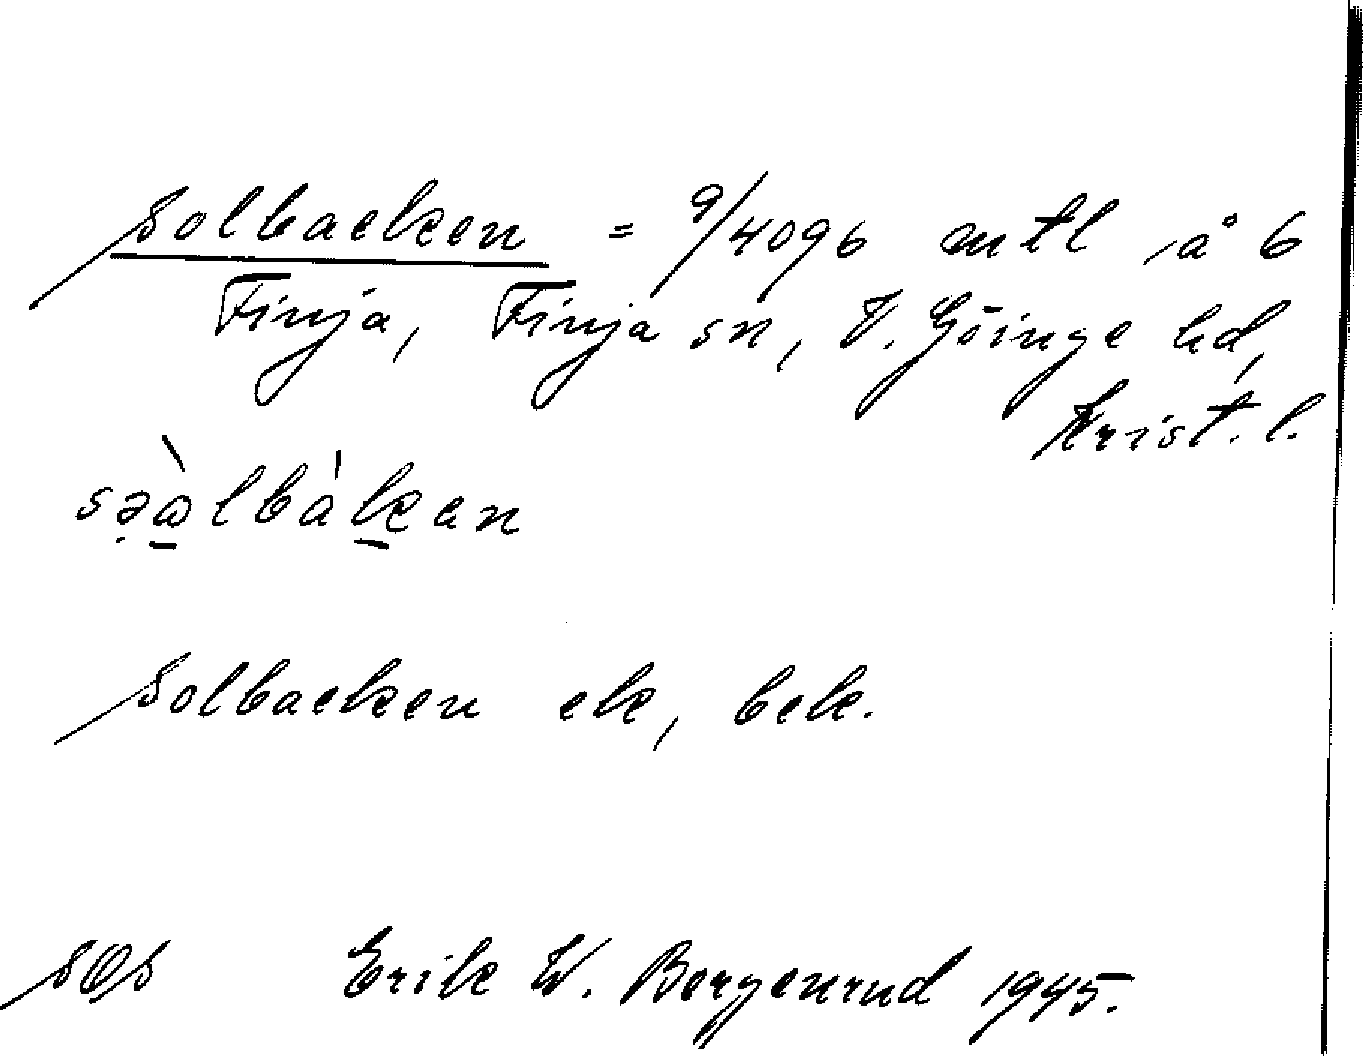 Solbacken = 9/4096 mtl å 6
Finja, Finja sn, V. Göinge hd,
Krist. l.
Solbacken ek, bek.
SOS Erik W. Bergenrud 1945.